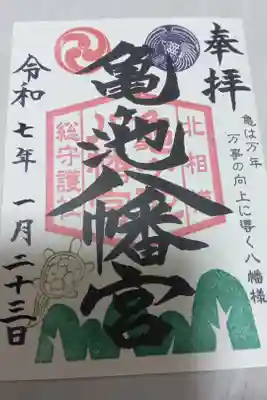 奉拝
亀は万年
万事の向上に導く八幡様
北相模
亀池八幡宮
総守護社
令和七年一月二十三日